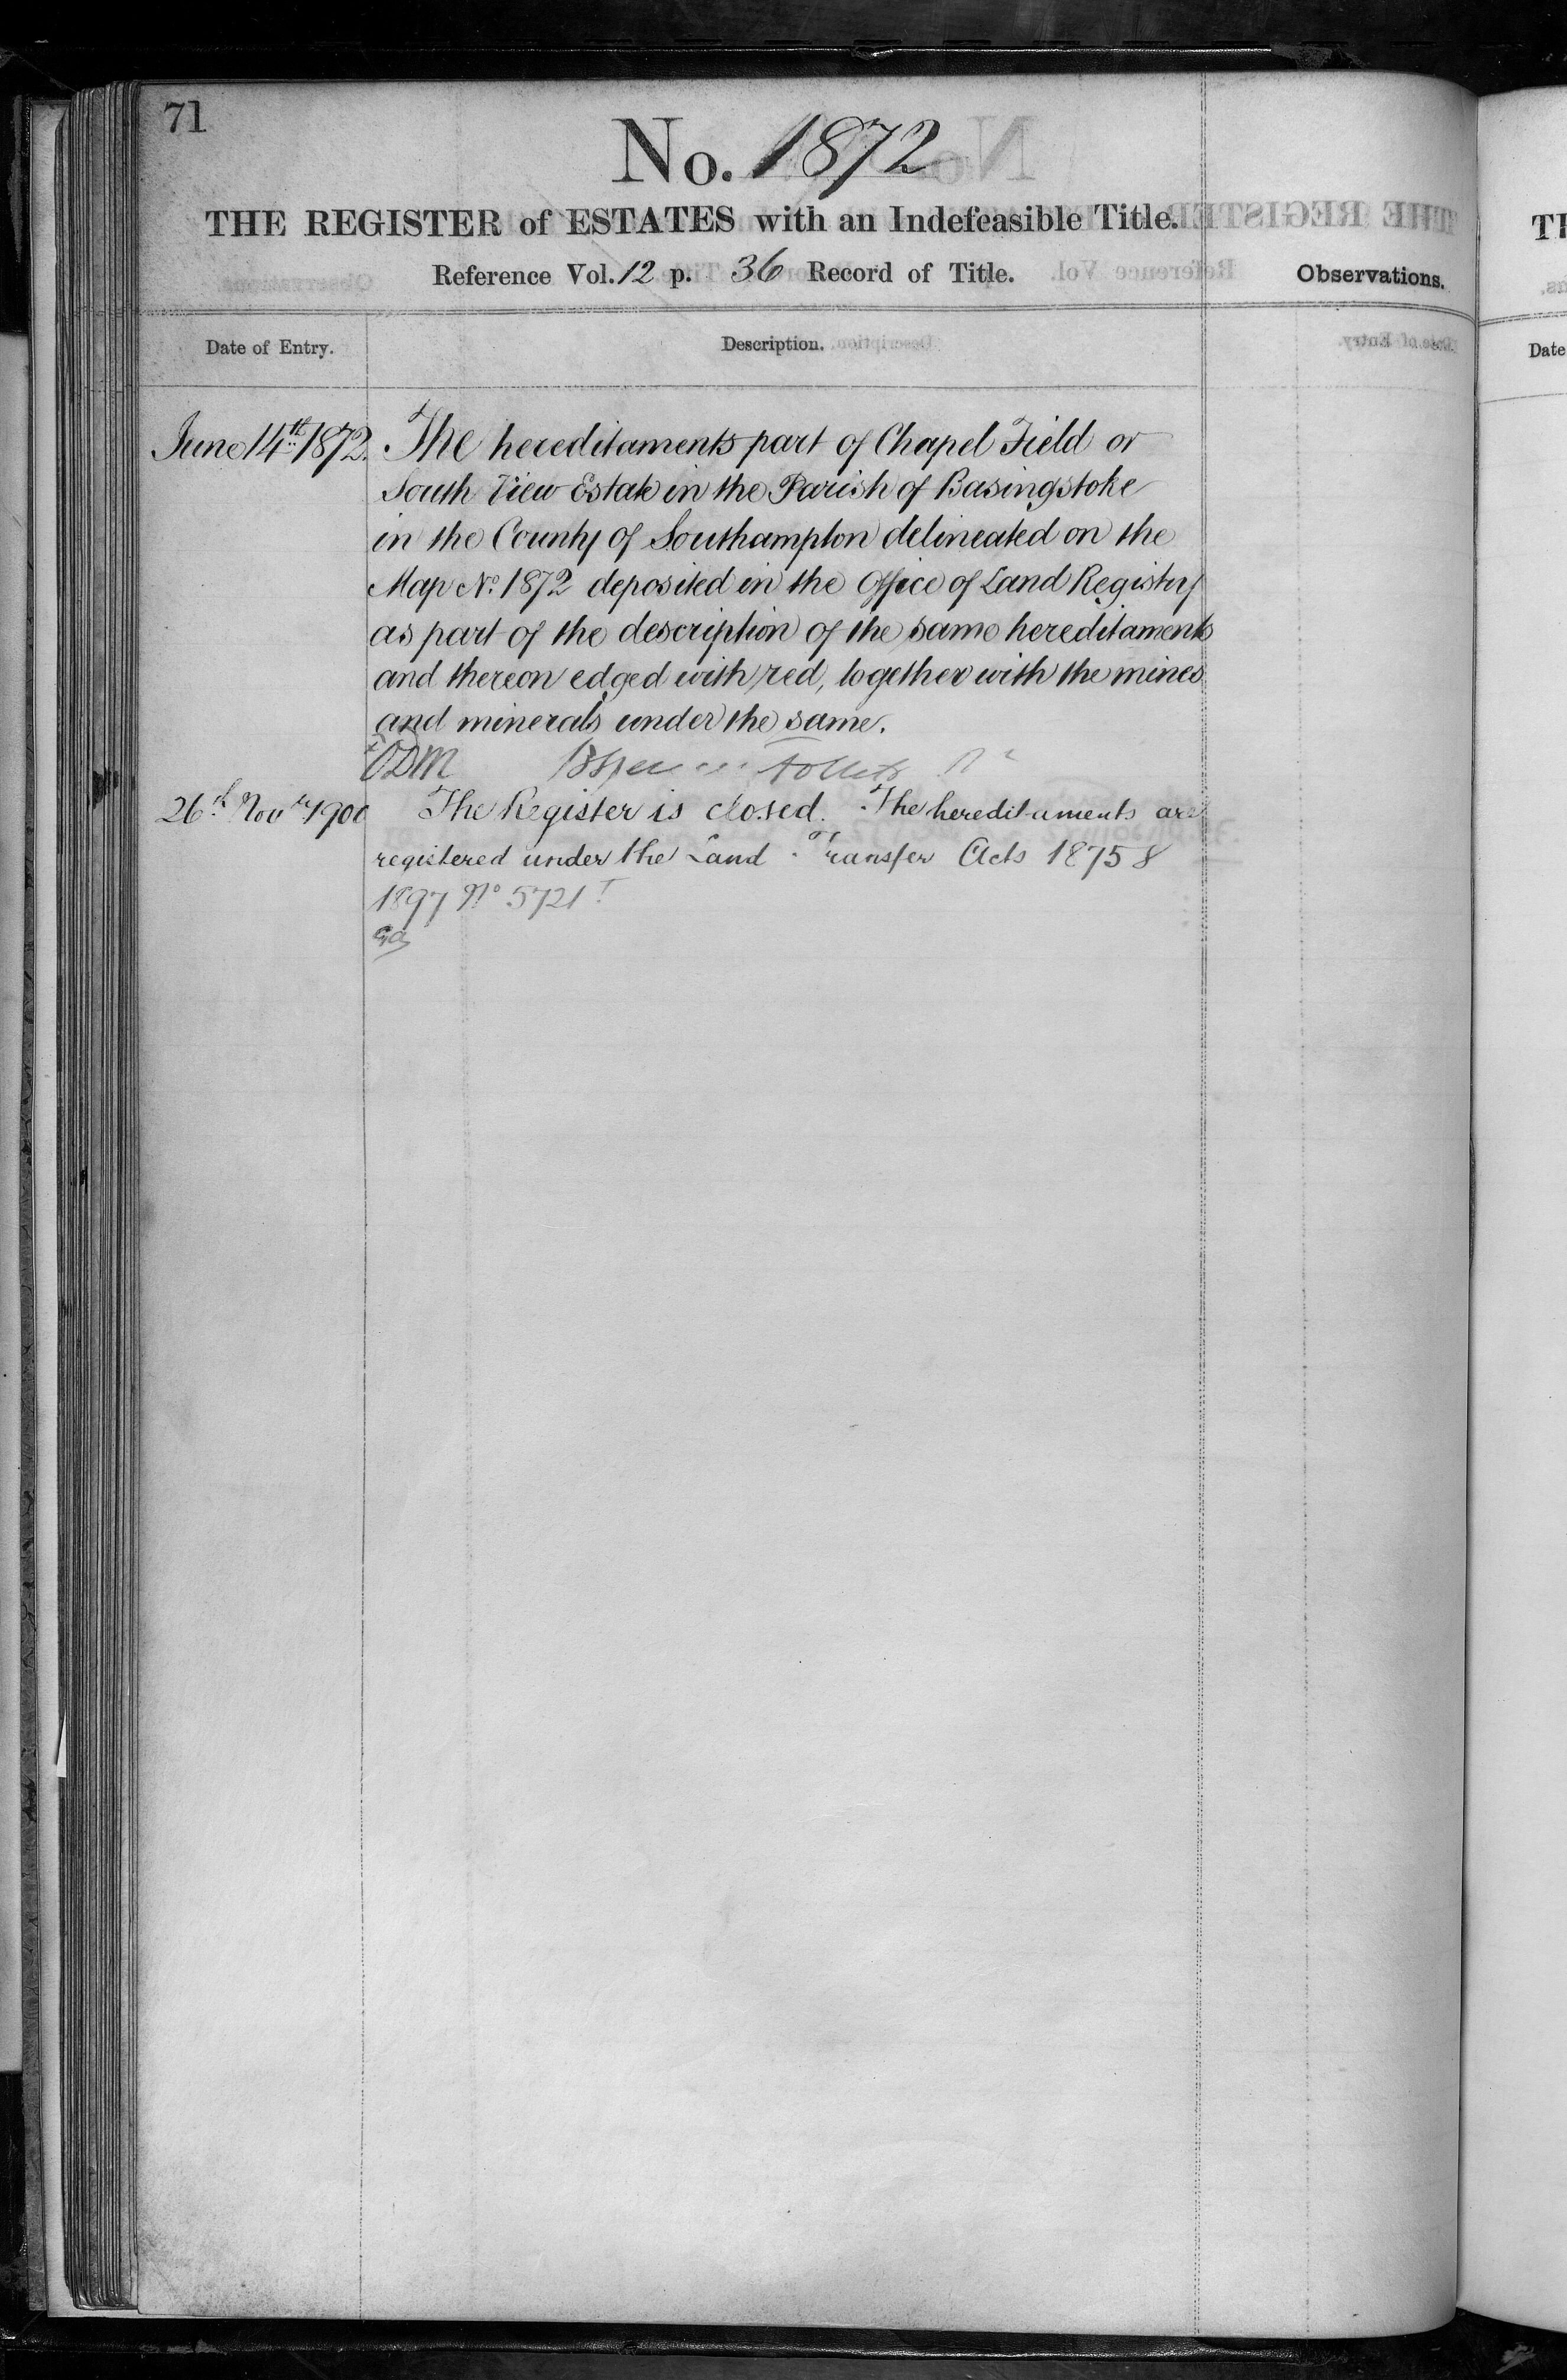 71
No. 1872
THE REGISTER of ESTATES with an Indefeasible Title.
Reference Vol. 12 p. 36 Record of Title.
Observations.
Date of Entry.
Description.
June 14th 1872. The hereditaments part of Chapel Field or
South View Estate in the Parish of Basingstoke
in the County of Southampton delineated on the
Map No. 1872 deposited in the Office of Land Registry
as part of the description of the same hereditaments
and thereon edged with red, together with the mines
and minerals under the same.
ODM
26th Novr 1900 The Register is closed. The hereditaments are
registered under the Land Transfer Acts 1875 &
1897 No 5721
TH
Date